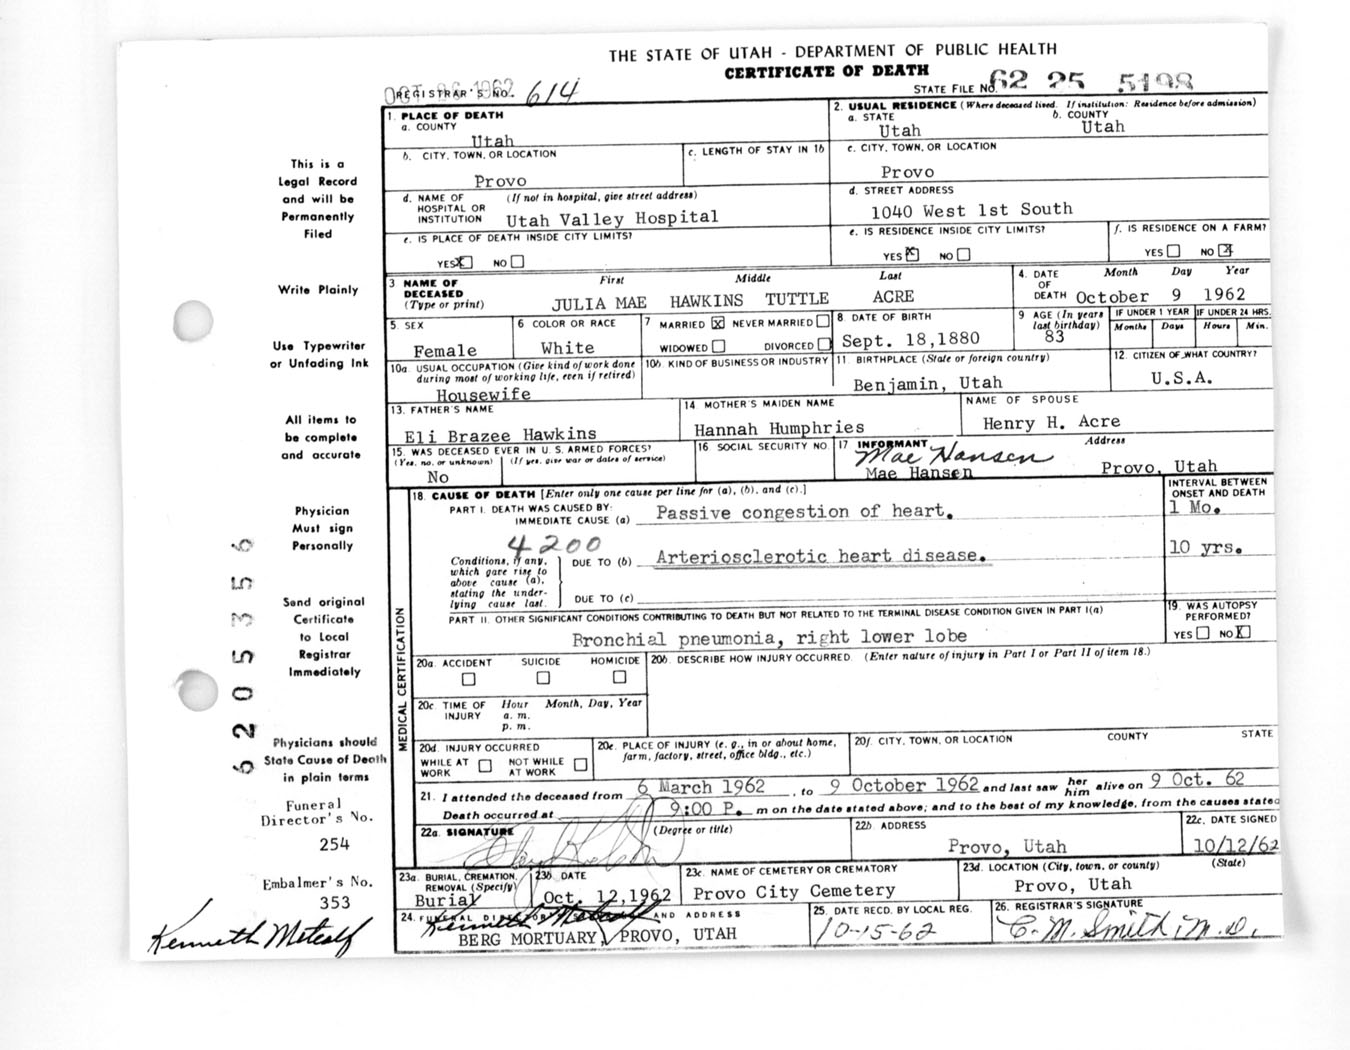 THE STATE OF UTAH - DEPARTMENT OF PUBLIC HEALTH
CERTIFICATE OF DEATH
OCT 26 1962
REGISTRAR'S NO. 614
STATE FILE NO. 62 25 5198
1. PLACE OF DEATH
a. COUNTY
Utah
2. USUAL RESIDENCE (Where deceased lived. If institution: Residence before admission)
a. STATE
Utah
b. COUNTY
Utah
b. CITY, TOWN, OR LOCATION
Provo
c. LENGTH OF STAY IN 1b
c. CITY, TOWN, OR LOCATION
Provo
d. NAME OF HOSPITAL OR INSTITUTION (If not in hospital, give street address)
Utah Valley Hospital
d. STREET ADDRESS
1040 West 1st South
e. IS PLACE OF DEATH INSIDE CITY LIMITS?
YES X NO
e. IS RESIDENCE INSIDE CITY LIMITS?
YES X NO
f. IS RESIDENCE ON A FARM?
YES NO X
3 NAME OF DECEASED (Type or print)
First Middle Last
JULIA MAE HAWKINS TUTTLE ACRE
4. DATE OF DEATH
Month Day Year
October 9 1962
5. SEX
Female
6 COLOR OR RACE
White
7 MARRIED X NEVER MARRIED
WIDOWED DIVORCED
8 DATE OF BIRTH
Sept. 18,1880
9 AGE (In years last birthday)
83
IF UNDER 1 YEAR
Months Days
IF UNDER 24 HRS.
Hours Min.
10a. USUAL OCCUPATION (Give kind of work done during most of working life, even if retired)
Housewife
10b. KIND OF BUSINESS OR INDUSTRY
11. BIRTHPLACE (State or foreign country)
Benjamin, Utah
12. CITIZEN OF WHAT COUNTRY?
U.S.A.
13. FATHER'S NAME
Eli Brazee Hawkins
14 MOTHER'S MAIDEN NAME
Hannah Humphries
NAME OF SPOUSE
Henry H. Acre
15. WAS DECEASED EVER IN U. S. ARMED FORCES?
(Yes, no, or unknown) (If yes, give war or dates of service)
No
16. SOCIAL SECURITY NO.
17 INFORMANT Address
Mae Hansen
Mae Hansen Provo, Utah
18. CAUSE OF DEATH [Enter only one cause per line for (a), (b), and (c).]
INTERVAL BETWEEN ONSET AND DEATH
PART I. DEATH WAS CAUSED BY:
IMMEDIATE CAUSE (a) Passive congestion of heart. 1 Mo.
4200
Conditions, if any, which gave rise to above cause (a), stating the underlying cause last.
DUE TO (b) Arteriosclerotic heart disease. 10 yrs.
DUE TO (c)
PART II. OTHER SIGNIFICANT CONDITIONS CONTRIBUTING TO DEATH BUT NOT RELATED TO THE TERMINAL DISEASE CONDITION GIVEN IN PART I(a)
Bronchial pneumonia, right lower lobe
19. WAS AUTOPSY PERFORMED?
YES NO X
MEDICAL CERTIFICATION
20a. ACCIDENT SUICIDE HOMICIDE
20b. DESCRIBE HOW INJURY OCCURRED. (Enter nature of injury in Part I or Part II of item 18.)
20c. TIME OF INJURY Hour Month, Day, Year
a. m.
p. m.
20d. INJURY OCCURRED
WHILE AT WORK NOT WHILE AT WORK
20e. PLACE OF INJURY (e. g., in or about home, farm, factory, street, office bldg., etc.)
20f. CITY, TOWN, OR LOCATION COUNTY STATE
21. I attended the deceased from 6 March 1962, to 9 October 1962 and last saw her him alive on 9 Oct. 62
Death occurred at 9:00 P. m on the date stated above; and to the best of my knowledge, from the causes stated
22a. SIGNATURE (Degree or title)
22b. ADDRESS
Provo, Utah
22c. DATE SIGNED
10/12/62
23a. BURIAL, CREMATION, REMOVAL (Specify)
Burial
23b. DATE
Oct. 12,1962
23c. NAME OF CEMETERY OR CREMATORY
Provo City Cemetery
23d. LOCATION (City, town, or county) (State)
Provo, Utah
24. FUNERAL DIRECTOR'S AND ADDRESS
Kenneth Metcalf
BERG MORTUARY, PROVO, UTAH
25. DATE RECD. BY LOCAL REG.
10-15-62
26. REGISTRAR'S SIGNATURE
C. M. Smith, M.D.
This is a
Legal Record
and will be
Permanently
Filed
Write Plainly
Use Typewriter
or Unfading Ink
All items to
be complete
and accurate
Physician
Must sign
Personally
Send original
Certificate
to Local
Registrar
Immediately
Physicians should
State Cause of Death
in plain terms
Funeral
Director's No.
254
Embalmer's No.
353
Kenneth Metcalf